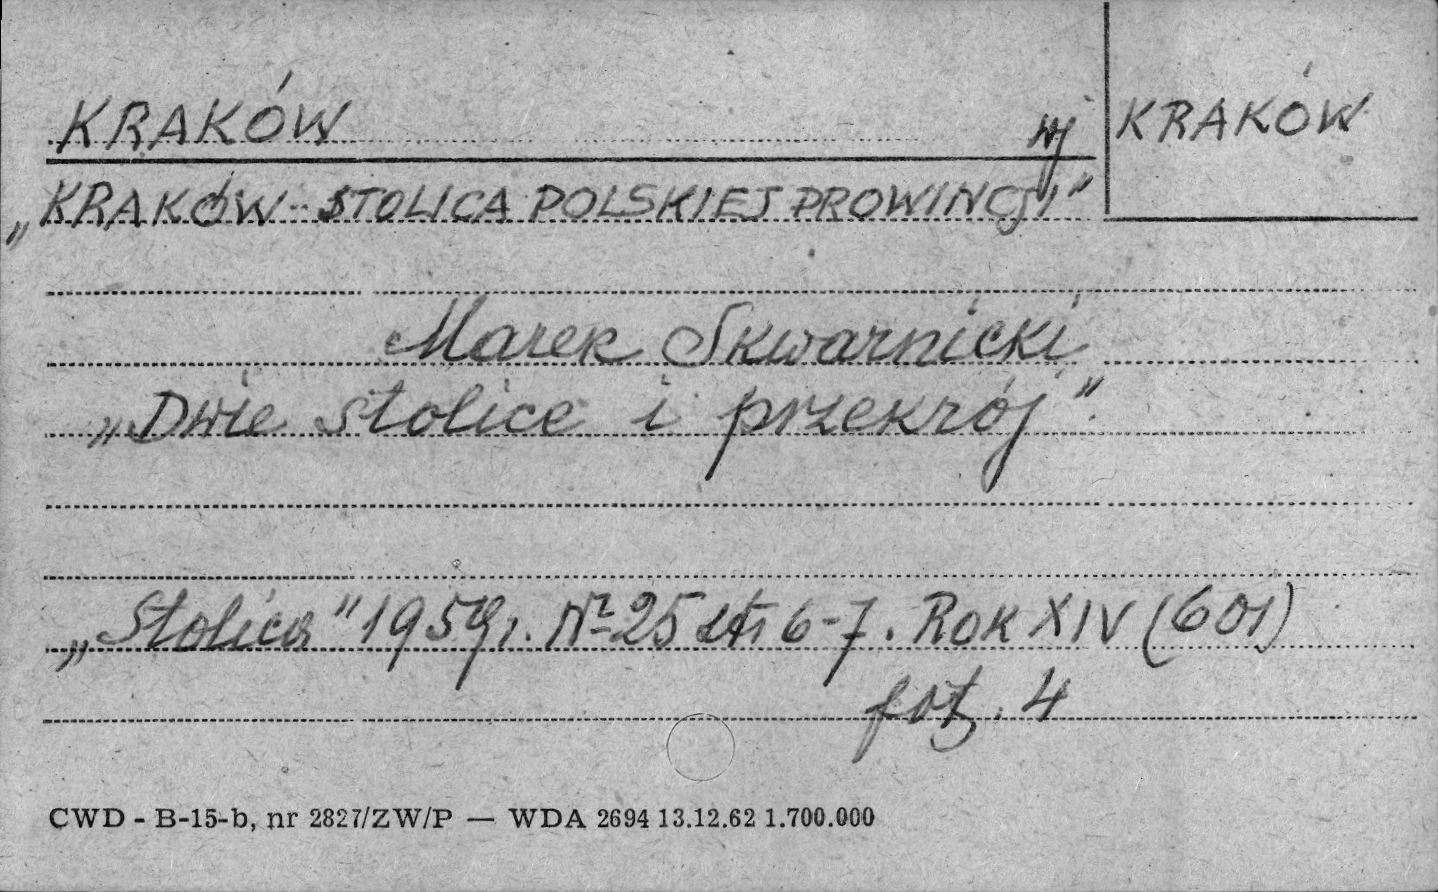 KRAKÓW wj KRAKÓW
„KRAKÓW - STOLICA POLSKIEJ PROWINCJI"
Marek Skwarnicki
„Dwie stolice i przekrój".
„Stolica" 1959r. Nr 25 str 6-7. Rok XIV (601)
fot. 4
CWD - B-15-b, nr 2827/ZW/P — WDA 2694 13.12.62 1.700.000